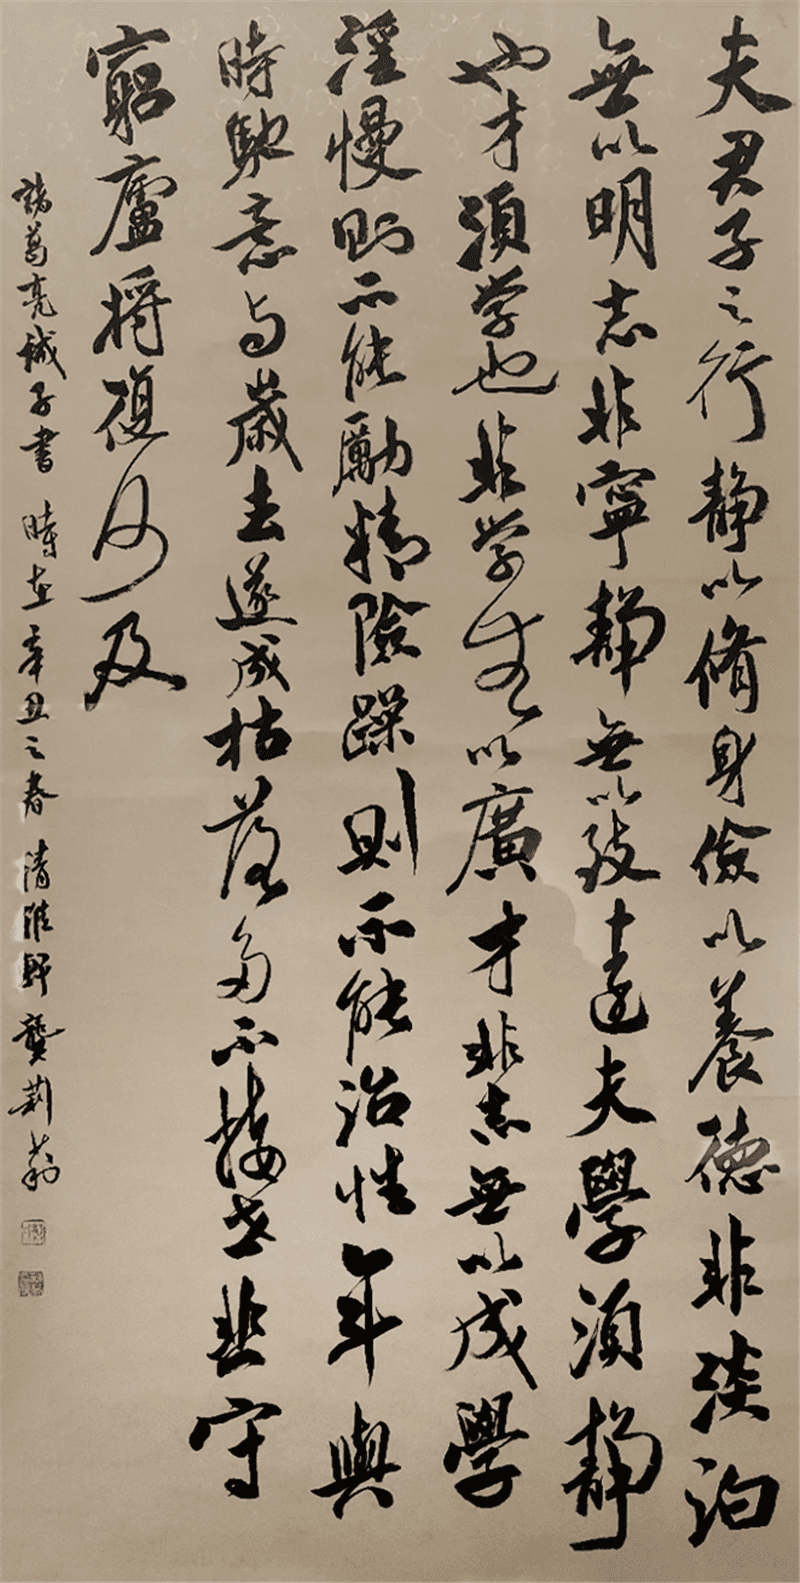 夫君子之行静以脩身儉以養德非淡泊
無以明志非寧静無以致遠夫學須静
也才須学也非学無以廣才非志無以成學
淫慢則不能勵精險躁則不能治性年與
時馳意与歲去遂成枯落多不接世悲守
窮廬將復何及
諸葛亮誡子書 時在辛丑之春 清雅軒 龔莉莉